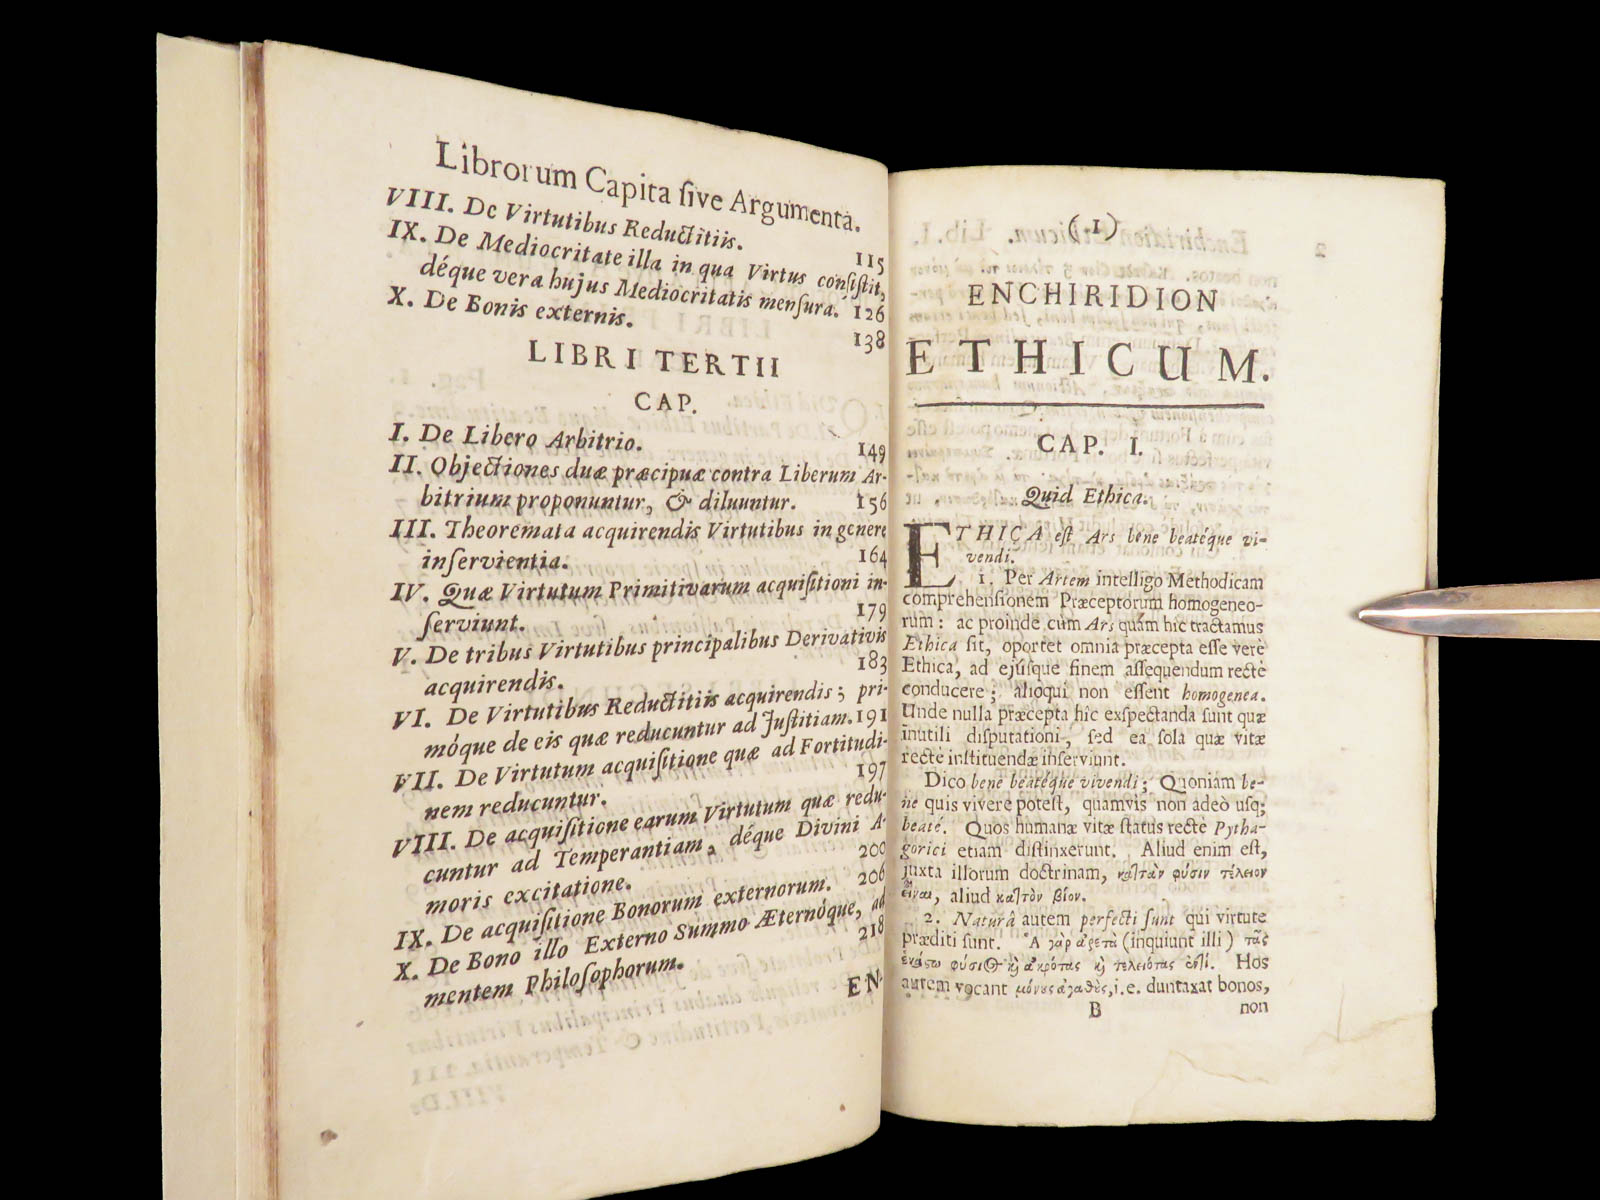 Librorum Capita ſive Argumenta.
VIII. De Virtutibus Reductitiis. 115
IX. De Mediocritate illa in qua Virtus conſiſtit,
déque vera hujus Mediocritatis menſura. 126
X. De Bonis externis. 138
LIBRI TERTII
CAP.
I. De Libero Arbitrio. 149
II. Objectiones duæ præcipuæ contra Liberum Ar-
bitrium proponuntur, & diluuntur. 156
III. Theoremata acquirendis Virtutibus in genere
inſervientia. 164
IV. Quæ Virtutum Primitivarum acquiſitioni in-
ſerviunt. 179
V. De tribus Virtutibus principalibus Derivativis
acquirendis. 183
VI. De Virtutibus Reductitiis acquirendis; pri-
móque de eis quæ reducuntur ad Juſtitiam. 191
VII. De Virtutum acquiſitione quæ ad Fortitudi-
nem reducuntur. 197
VIII. De acquiſitione earum Virtutum quæ redu-
cuntur ad Temperantiam, déque Divini A-
moris excitatione. 200
IX. De acquiſitione Bonorum externorum. 206
X. De Bono illo Externo Summo Æternóque, ad
mentem Philoſophorum. 218
EN-
(1)
ENCHIRIDION
ETHICUM.
CAP. I.
Quid Ethica.
ETHICA eſt Ars bene beatéque vi-
vendi.
1. Per Artem intelligo Methodicam
comprehenſionem Præceptorum homogeneo-
rum: ac proinde cùm Ars quam hic tractamus
Ethica ſit, oportet omnia præcepta eſſe verè
Ethica, ad ejúſque finem aſſequendum rectè
conducere; alioqui non eſſent homogenea.
Unde nulla præcepta hîc exſpectanda ſunt quæ
inutili diſputationi, ſed ea ſola quæ vitæ
rectè inſtituendæ inſerviunt.
Dico bene beatéque vivendi; Quoniam be-
ne quis vivere poteſt, quamvis non adeò uſq;
beatè. Quos humanæ vitæ ſtatus rectè Pytha-
gorici etiam diſtinxerunt. Aliud enim eſt,
juxta illorum doctrinam, καττὰν φύσιν τέλειον
εἶναι, aliud καττὸν βίον.
2. Naturâ autem perfecti ſunt qui virtute
præditi ſunt. Ἁ γὰρ ἀρετὰ (inquiunt illi) τᾶς
ἑκάστω φύσιος καὶ ἀκρότας καὶ τελειότας ἐστί. Hos
autem vocant μόνως ἀγαθὲς, i.e. duntaxat bonos,
B non